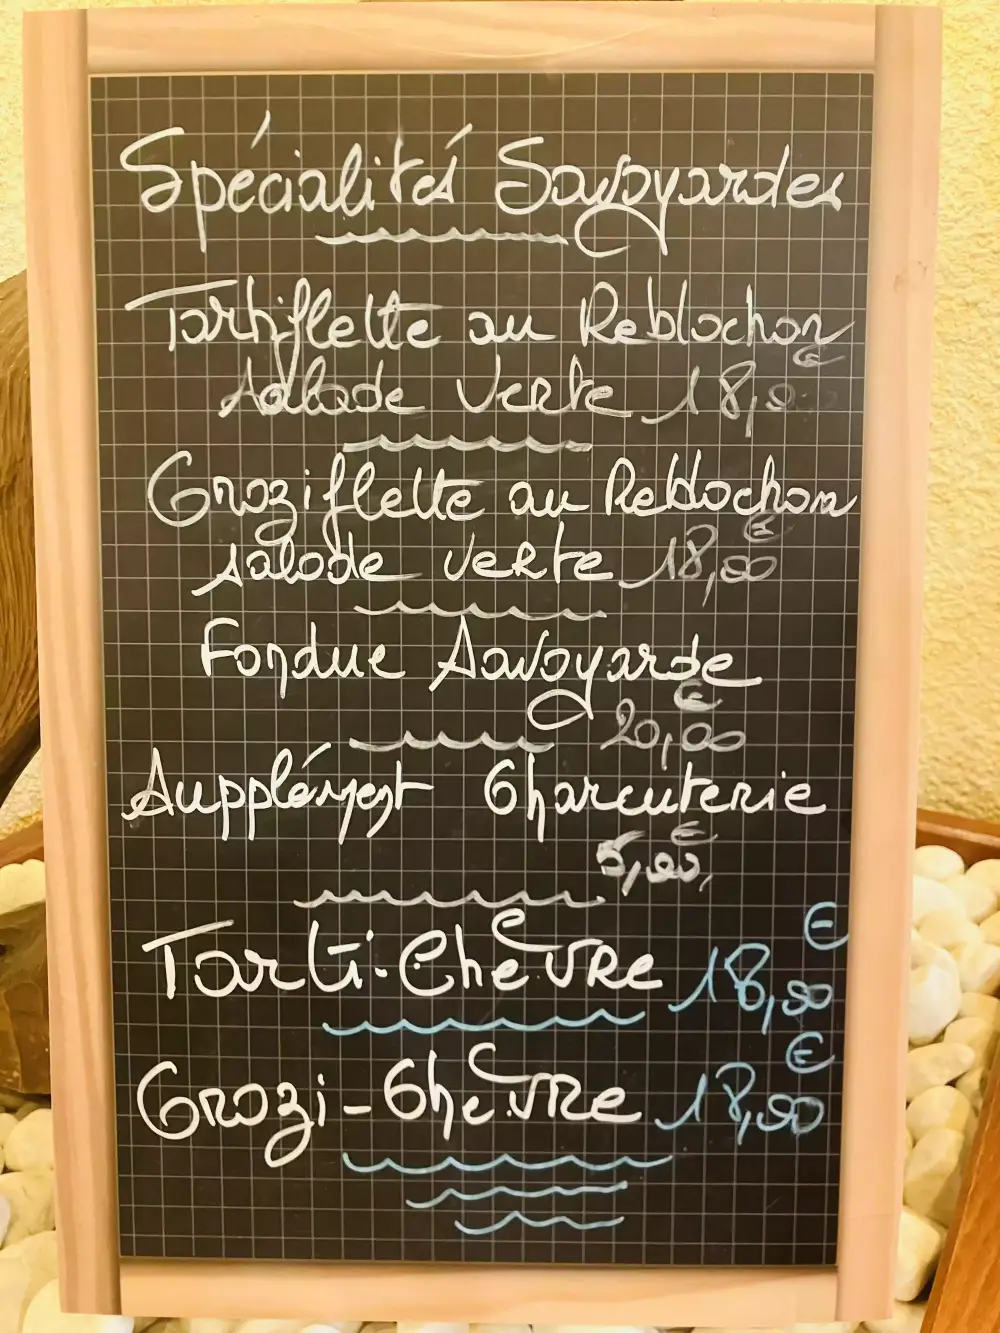 Spécialités Savoyardes
Tartiflette au Reblochon
salade verte 18,00 €
Croziflette au Reblochon
salade verte 18,00 €
Fondue Savoyarde
20,00 €
Supplément Charcuterie
5,00 €
Tarti-Chèvre 18,00 €
Crozi-Chèvre 18,00 €